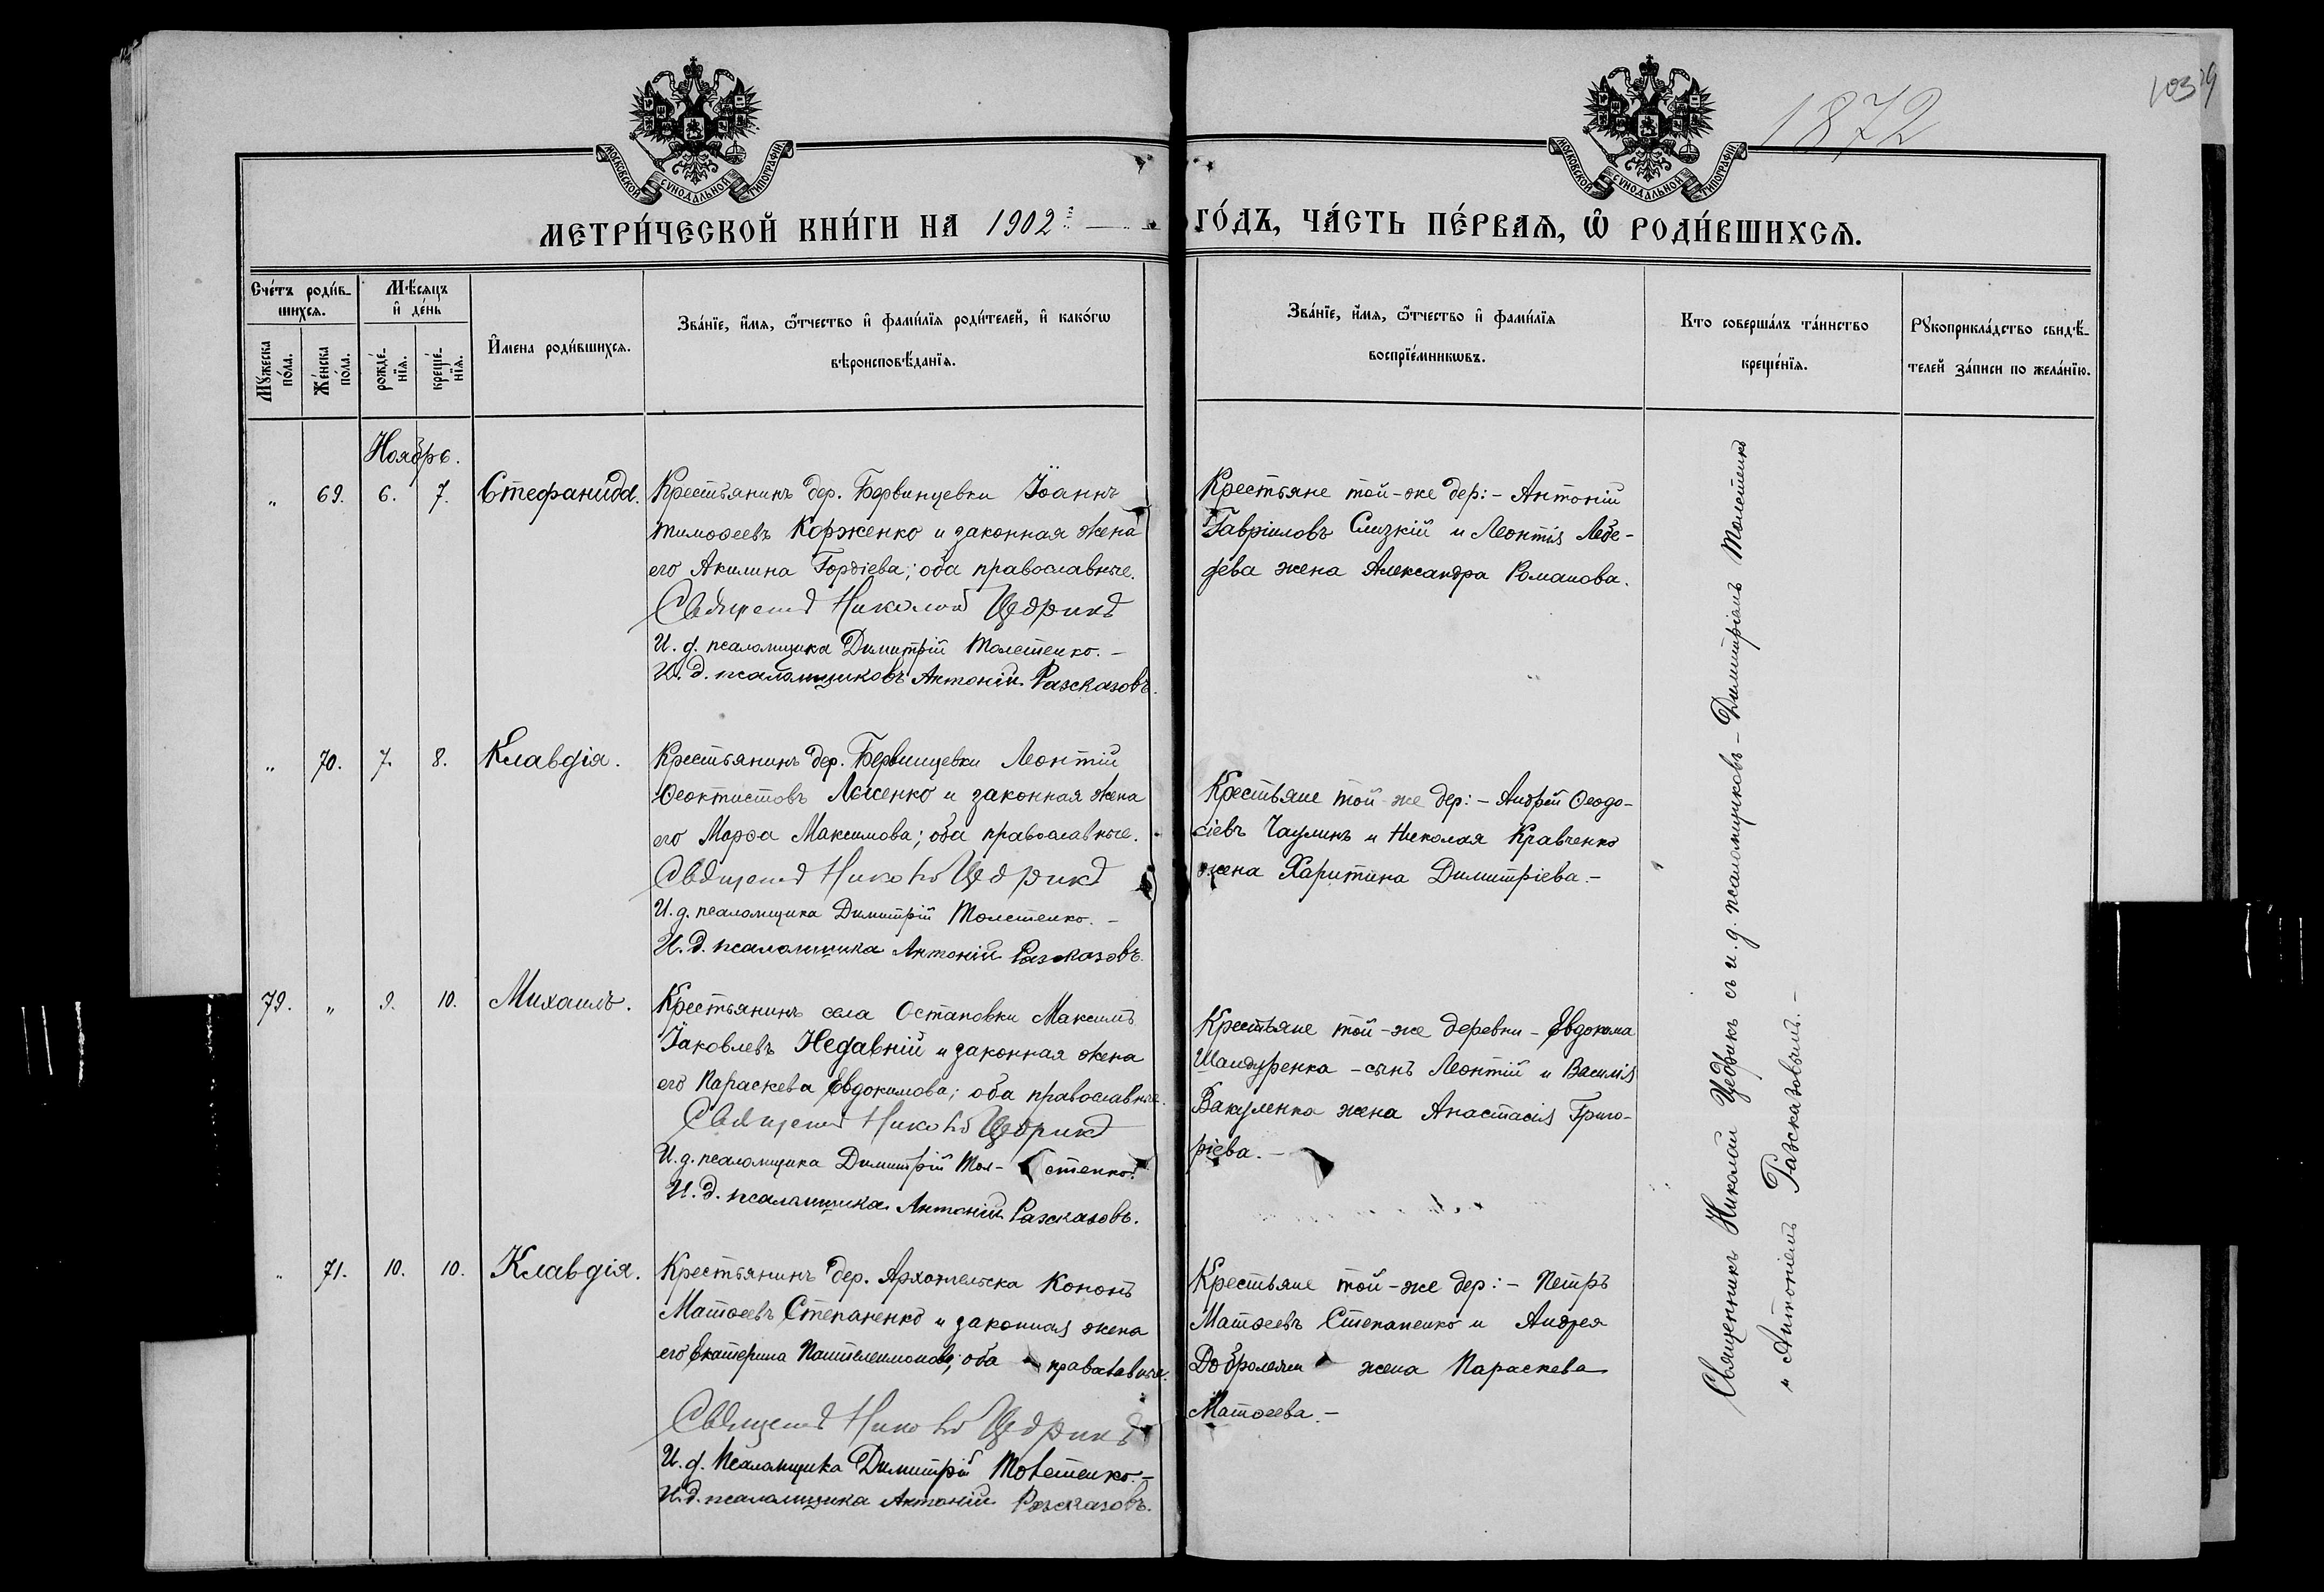 1872
103
МОСКОВСКОЙ СѴНОДАЛЬНОЙ ТИПОГРАФІИ
МОСКОВСКОЙ СѴНОДАЛЬНОЙ ТИПОГРАФІИ
МЕТРИ́ЧЕСКОЙ КНИ́ГИ НА 1902 й ГО́ДЪ, ЧА́СТЬ ПЕ́РВАѦ, Ѽ РОДИ́ВШИХСѦ.
Сче́тъ роди́в-
шихсѧ.
Мꙋ́жеска по́ла.
Же́нска по́ла.
Мѣ́сѧцъ
и҆ де́нь
рожде́-
нїѧ.
креще́-
нїѧ.
И҆мена роди́вшихсѧ.
Зва́нїе, и҆́мѧ, ѻ҆́тчество и҆ фами́лїѧ роди́телей, и҆ како́гѡ
вѣроисповѣ́данїѧ.
Зва́нїе, и҆́мѧ, ѻ҆́тчество и҆ фами́лїѧ
воспрїе́мникѡвъ.
Кто соверша́лъ та́инство
креще́нїѧ.
Рꙋкоприкла́дство свидѣ́-
телей за́писи по жела́нїю.
Ноябрь.
„ 69. 6. 7. Стефанида.
Крестьянинъ дер. Бервинцевки Іоаннъ
Тимоѳеевъ Корженко и законная жена
его Акилина Гордіева; оба православные.
Священникъ Николай Цедрикъ
И. д. псаломщика Димитрій Толстенко. –
И. д. псаломщиковъ Антоній Разсказовъ.
Крестьяне той-же дер: – Антоній
Гавріиловъ Слизкій и Леонтія Лебе-
дева жена Александра Романова.
„ 70. 7. 8. Клавдія.
Крестьянинъ дер. Бервинцевки Леонтій
Ѳеоктистовъ и законная жена
его Марѳа Максимова; оба православные.
Священникъ Николай Цедрикъ
И. д. псаломщика Димитрій Толстенко. –
И. д. псаломщика Антоній Разсказовъ.
Крестьяне той-же дер: – Андрей Ѳеодо-
сіевъ Чаулинъ и Николая Кравченко
жена Харитина Димитріева. –
79. „ 9. 10. Михаилъ.
Крестьянинъ села Остаповки Максимъ
Іаковлевъ Недавній и законная жена
его Параскева Евдокимова; оба православные.
Священникъ Николай Цедрикъ
И. д. псаломщика Димитрій Тол- стенко.
И. д. псаломщика Антоній Разсказовъ.
Крестьяне той-же деревни – Евдокима
Шандуренка – сынъ Леонтій и Василія
Вакуленка жена Анастасія Григо-
ріева. –
„ 71. 10. 10. Клавдія.
Крестьянинъ дер. Кононъ
Матѳеевъ Степаненко и законная жена
его Екатерина Пантелеимонова; оба православные.
Священникъ Николай Цедрикъ
И. д. Псаломщика Димитрій Толстенко. –
И. д. псаломщика Антоній Разсказовъ.
Крестьяне той-же дер: – Петръ
Матѳеевъ Степаненко и Андрея
жена Параскева
Матѳеева. –
Священникъ Николай Цедрикъ съ и. д. псаломщиковъ – Димитріемъ Толстенко
и Антоніемъ Разсказовымъ. –